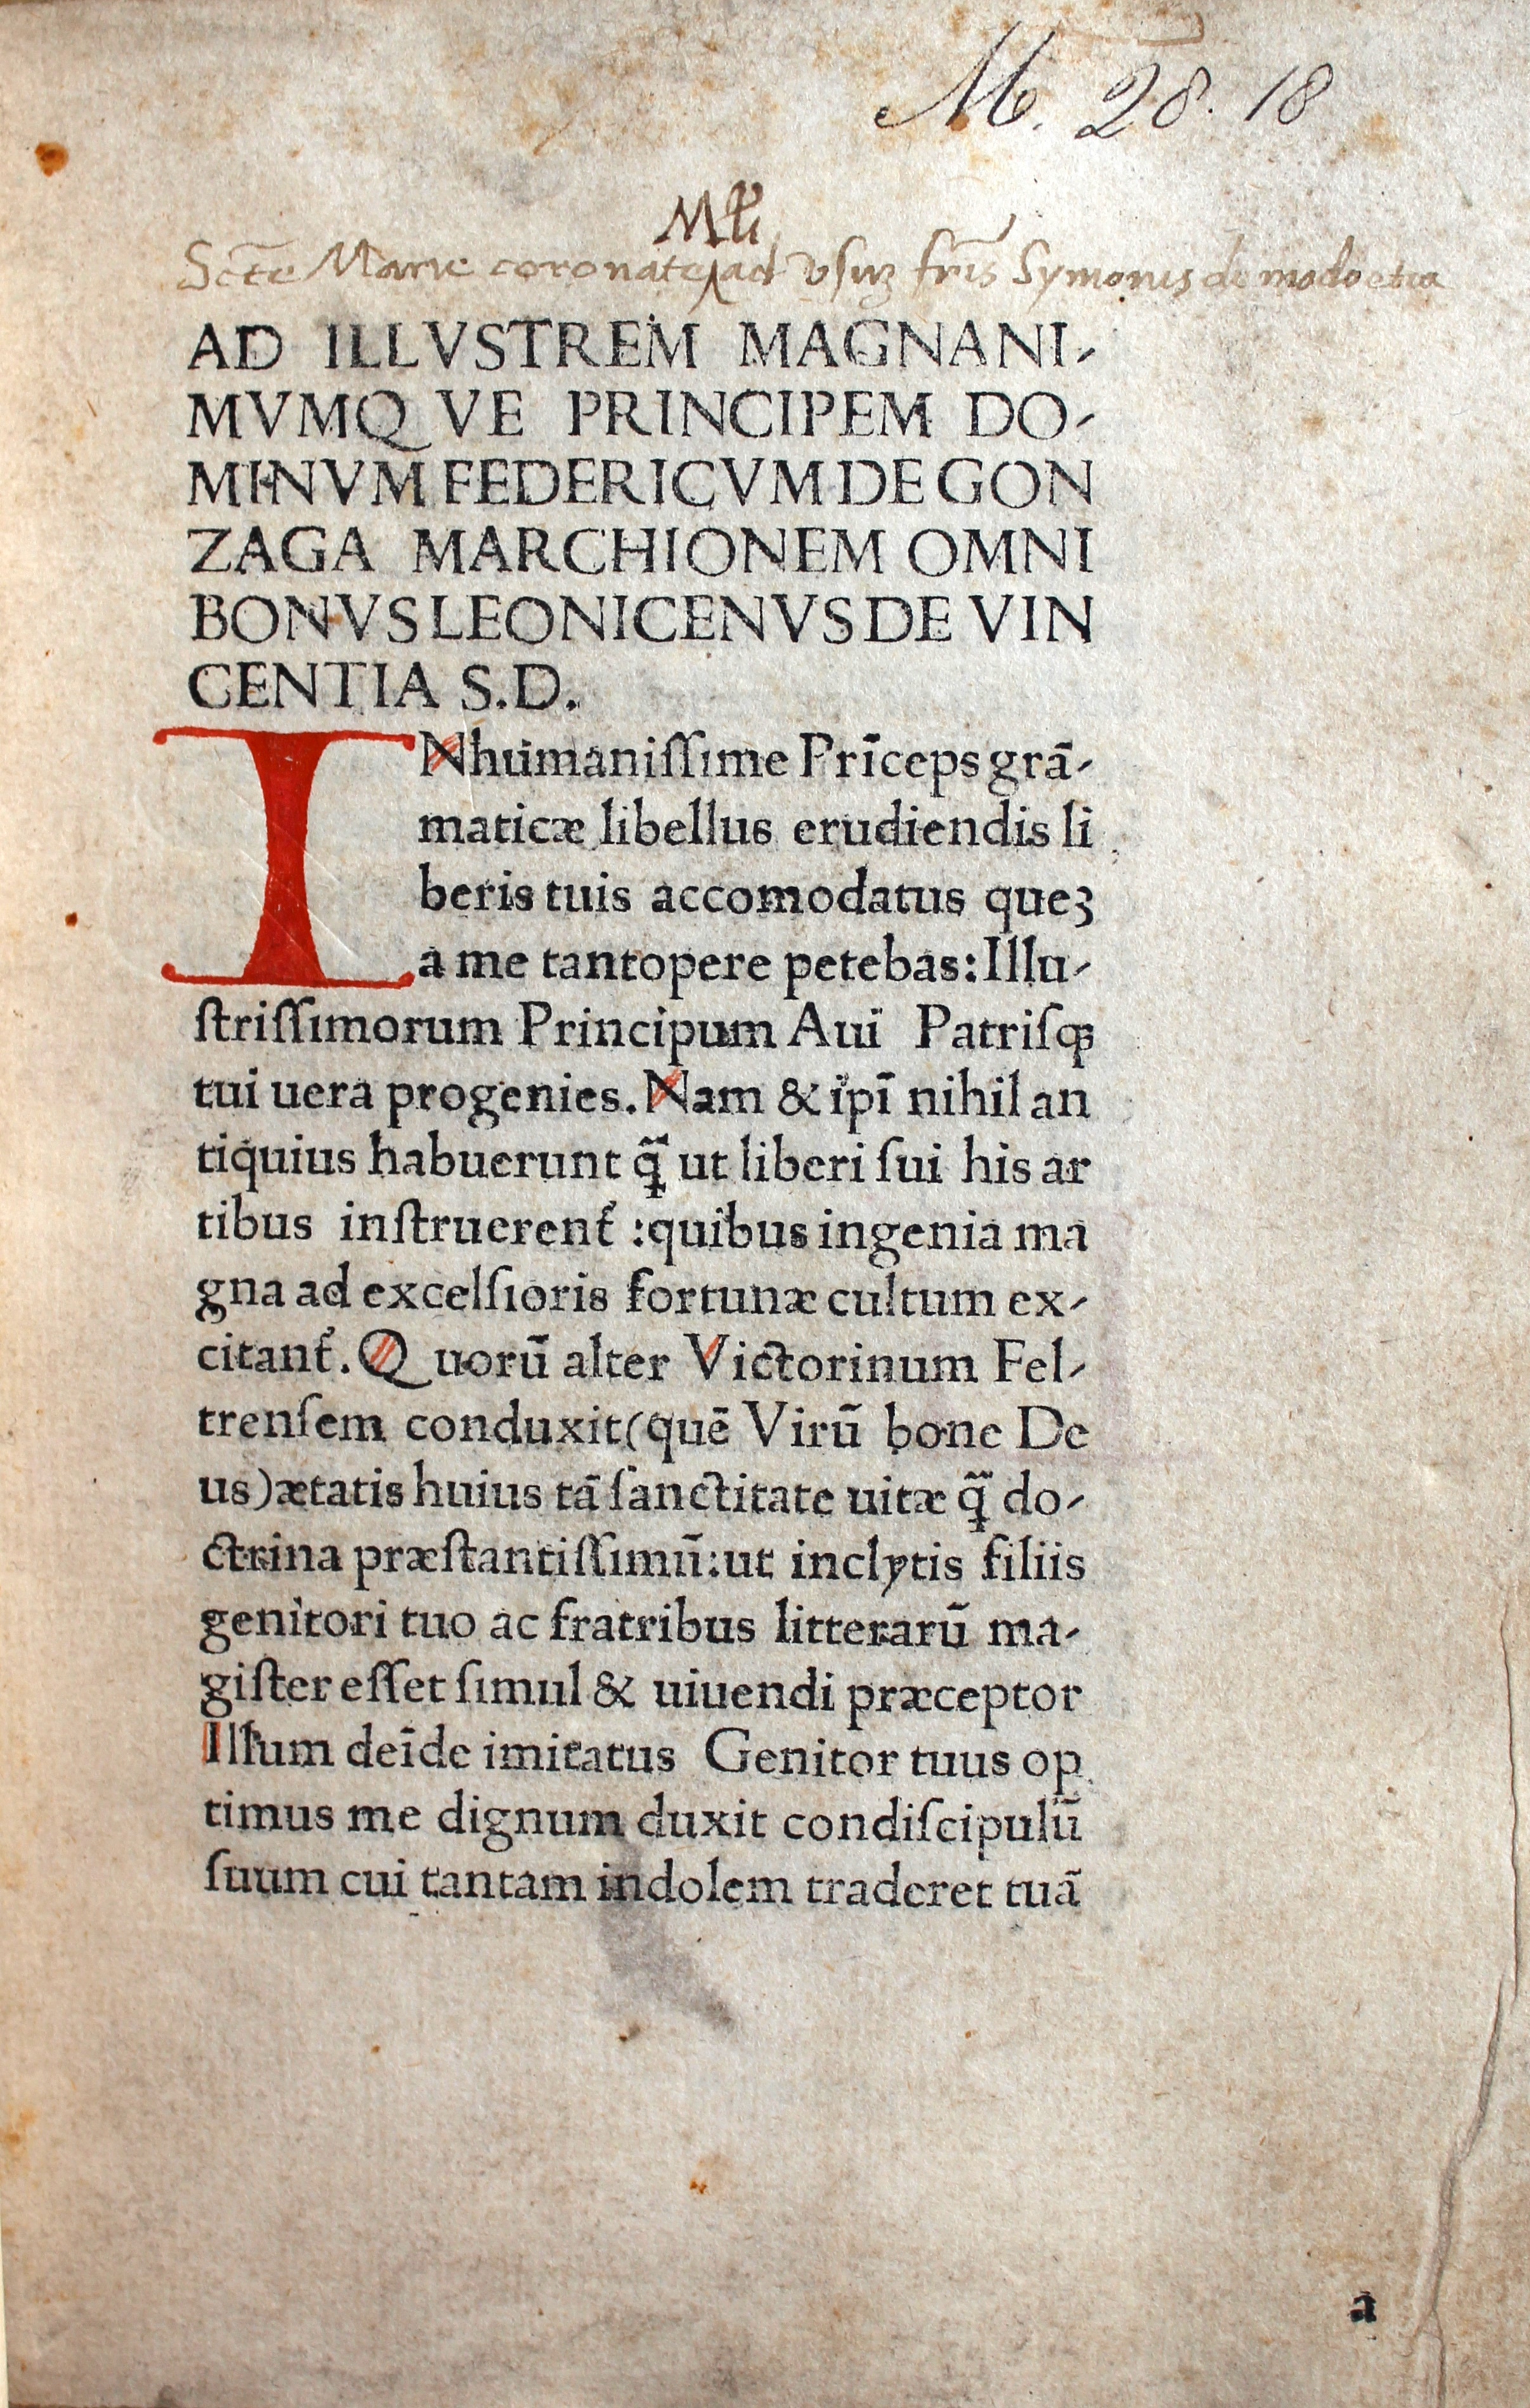 M. 28. 18
Młi
Scte Marie coronate ad vsuʒ fr̃is Symonis de modoetia
AD ILLVSTREM MAGNANI-
MVMQVE PRINCIPEM DO-
MINVM FEDERICVM DE GON
ZAGA MARCHIONEM OMNI
BONVS LEONICENVS DE VIN
CENTIA S.D.
INhumaniſſime Prīceps grā-
maticæ libellus erudiendis li
beris tuis accomodatus queʒ
a me tantopere petebas: Illu-
ſtriſſimorum Principum Aui Patriſꝗ
tui uera progenies. Nam & ip̄i nihil an
tiquius habuerunt q̃ ut liberi ſui his ar
tibus inſtruerent᷑ : quibus ingenia ma
gna ad excelſioris fortunæ cultum ex-
citant᷑. Quorū alter Victorinum Fel-
trenſem conduxit (quē Virū bone De
us) ætatis huius tā ſanctitate uitæ q̃ do-
ctrina præſtantiſſimū: ut inclytis filiis
genitori tuo ac fratribus litterarū ma-
giſter eſſet ſimul & uiuendi præceptor
Illum deīde imitatus Genitor tuus op
timus me dignum duxit condiſcipulū
ſuum cui tantam indolem traderet tuā
a